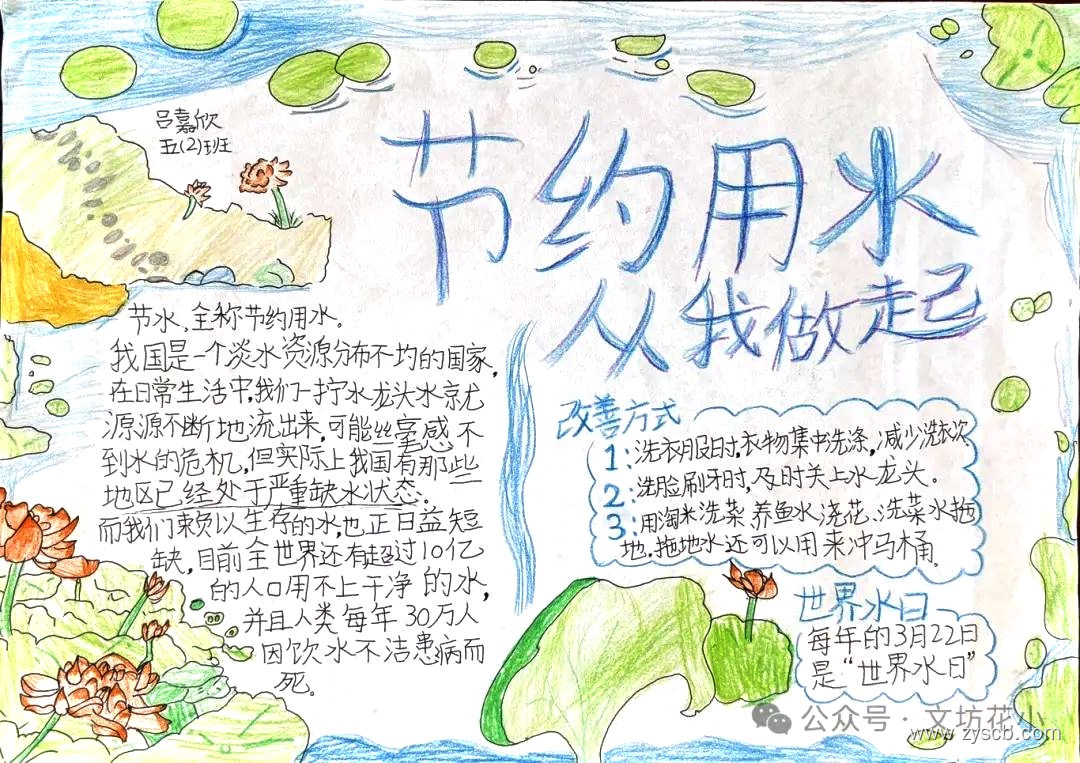 吕嘉欣
五(2)班
节约用水
从我做起
节水,全称节约用水。
我国是一个淡水资源分布不均的国家,
在日常生活中,我们一拧水龙头水就
源源不断地流出来,可能丝毫感不
到水的危机,但实际上我国有那些
地区已经处于严重缺水状态。
而我们赖以生存的水也正日益短
缺,目前全世界还有超过10亿
的人口用不上干净的水,
并且人类每年30万人
因饮水不洁患病而
死。
改善方式
1:洗衣服时,衣物集中洗涤,减少洗衣次
2:洗脸刷牙时,及时关上水龙头。
3:用淘米洗菜养鱼水浇花、洗菜水拖
地。拖地水还可以用来冲马桶。
世界水日
每年的3月22日
是“世界水日”
公众号·文坊花小
www.zyscb.com